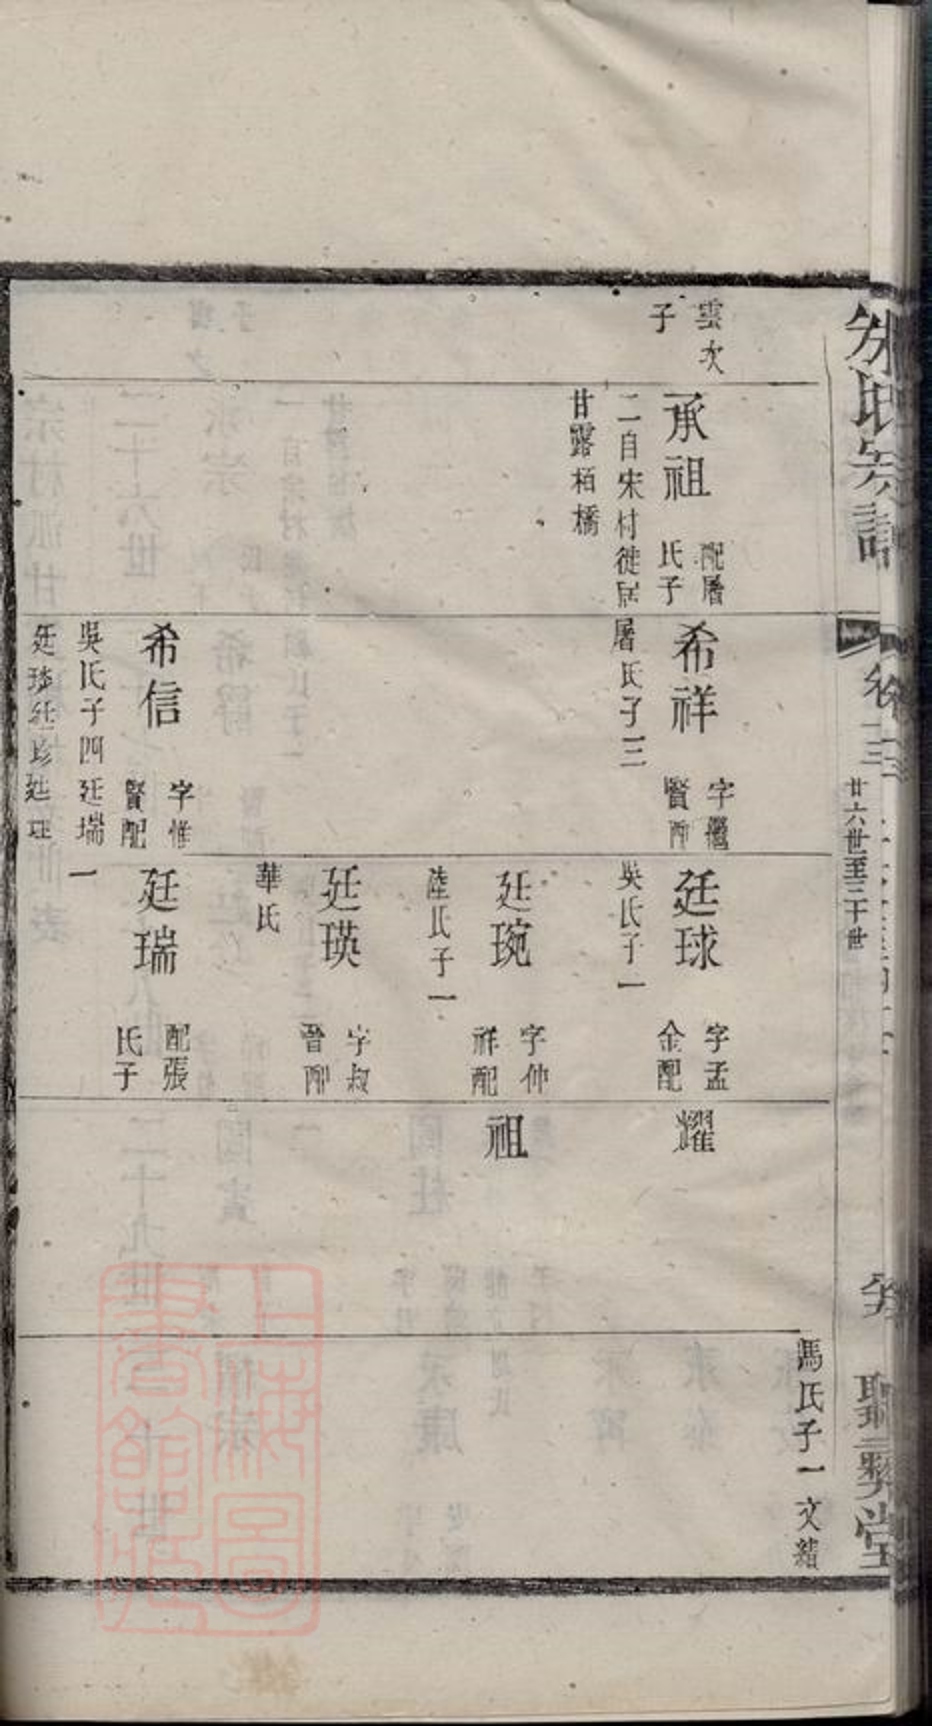 雲次
子
承祖
配屠
氏子
二自宋村徙居
甘露栢橋
希祥
字繼
賢配
屠氏子三
希信
字惟
賢配
吳氏子四廷瑞
廷珍廷
廷球
字孟
金配
吳氏子一
廷琬
字仲
祥配
陸氏子一
廷瑛
字叔
晉配
華氏
廷瑞
配張
氏子
一
耀
祖
馮氏子一文緒
氏宗譜
卷三
廿六世至三十世
聚堂
上海圖書館藏